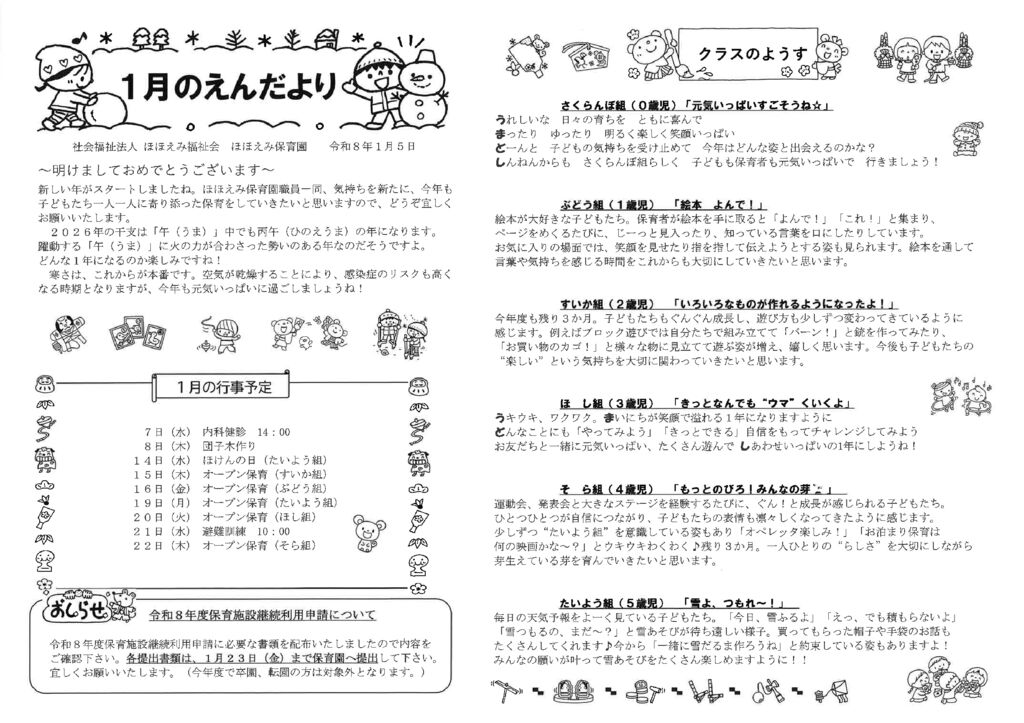 1月のえんだより
社会福祉法人 ほほえみ福祉会 ほほえみ保育園 令和8年1月5日
～明けましておめでとうございます～
新しい年がスタートしましたね。ほほえみ保育園職員一同、気持ちを新たに、今年も
子どもたち一人一人に寄り添った保育をしていきたいと思いますので、どうぞ宜しく
お願いいたします。
２０２６年の干支は「午（うま）」中でも丙午（ひのえうま）の年になります。
躍動する「午（うま）」に火の力が合わさった勢いのある年なのだそうですよ。
どんな１年になるのか楽しみですね！
寒さは、これからが本番です。空気が乾燥することにより、感染症のリスクも高く
なる時期となりますが、今年も元気いっぱいに過ごしましょうね！
１月の行事予定
７日（水） 内科健診 14：00
８日（木） 団子木作り
１４日（水） ほけんの日（たいよう組）
１５日（木） オープン保育（すいか組）
１６日（金） オープン保育（ぶどう組）
１９日（月） オープン保育（たいよう組）
２０日（火） オープン保育（ほし組）
２１日（水） 避難訓練 10：00
２２日（木） オープン保育（そら組）
おしらせ
令和８年度保育施設継続利用申請について
令和８年度保育施設継続利用申請に必要な書類を配布いたしましたので内容を
ご確認下さい。各提出書類は、１月２３日（金）まで保育園へ提出して下さい。
宜しくお願いいたします。（今年度で卒園、転園の方は対象外となります。）
クラスのようす
さくらんぼ組（０歳児）「元気いっぱいすごそうね☆」
うれしいな 日々の育ちを ともに喜んで
まったり ゆったり 明るく楽しく笑顔いっぱい
どーんと 子どもの気持ちを受け止めて 今年はどんな姿と出会えるのかな？
しんねんからも さくらんぼ組らしく 子どもも保育者も元気いっぱいで 行きましょう！
ぶどう組（１歳児）「絵本 よんで！」
絵本が大好きな子どもたち。保育者が絵本を手に取ると「よんで！」「これ！」と集まり、
ページをめくるたびに、じーっと見入ったり、知っている言葉を口にしたりしています。
お気に入りの場面では、笑顔を見せたり指を指して伝えようとする姿も見られます。絵本を通して
言葉や気持ちを感じる時間をこれからも大切にしていきたいと思います。
すいか組（２歳児） 「いろいろなものが作れるようになったよ！」
今年度も残り３か月。子どもたちもぐんぐん成長し、遊び方も少しずつ変わってきているように
感じます。例えばブロック遊びでは自分たちで組み立てて「バーン！」と銃を作ってみたり、
「お買い物のカゴ！」と様々な物に見立てて遊ぶ姿が増え、嬉しく思います。今後も子どもたちの
“楽しい”という気持ちを大切に関わっていきたいと思います。
ほ し組（３歳児） 「きっとなんでも“ウマ”くいくよ」
うキウキ、ワクワク。まいにちが笑顔で溢れる１年になりますように
どんなことにも「やってみよう」「きっとできる」自信をもってチャレンジしてみよう
お友だちと一緒に元気いっぱい、たくさん遊んで しあわせいっぱいの1年にしようね！
そ ら組（４歳児） 「もっとのびろ！みんなの芽」
運動会、発表会と大きなステージを経験するたびに、ぐん！と成長が感じられる子どもたち。
ひとつひとつが自信につながり、子どもたちの表情も凛々しくなってきたように感じます。
少しずつ“たいよう組”を意識している姿もあり「オペレッタ楽しみ！」「お泊まり保育は
何の映画かな～？」とウキウキわくわく♪残り３か月。一人ひとりの“らしさ”を大切にしながら
芽生えている芽を育んでいきたいと思います。
たいよう組（５歳児）「雪よ、つもれ～！」
毎日の天気予報をよーく見ている子どもたち。「今日、雪ふるよ」「えっ、でも積もらないよ」
「雪つもるの、まだ～？」と雪あそびが待ち遠しい様子。買ってもらった帽子や手袋のお話も
たくさんしてくれます♪今から「一緒に雪だるま作ろうね」と約束している姿もありますよ！
みんなの願いが叶って雪あそびをたくさん楽しめますように！！